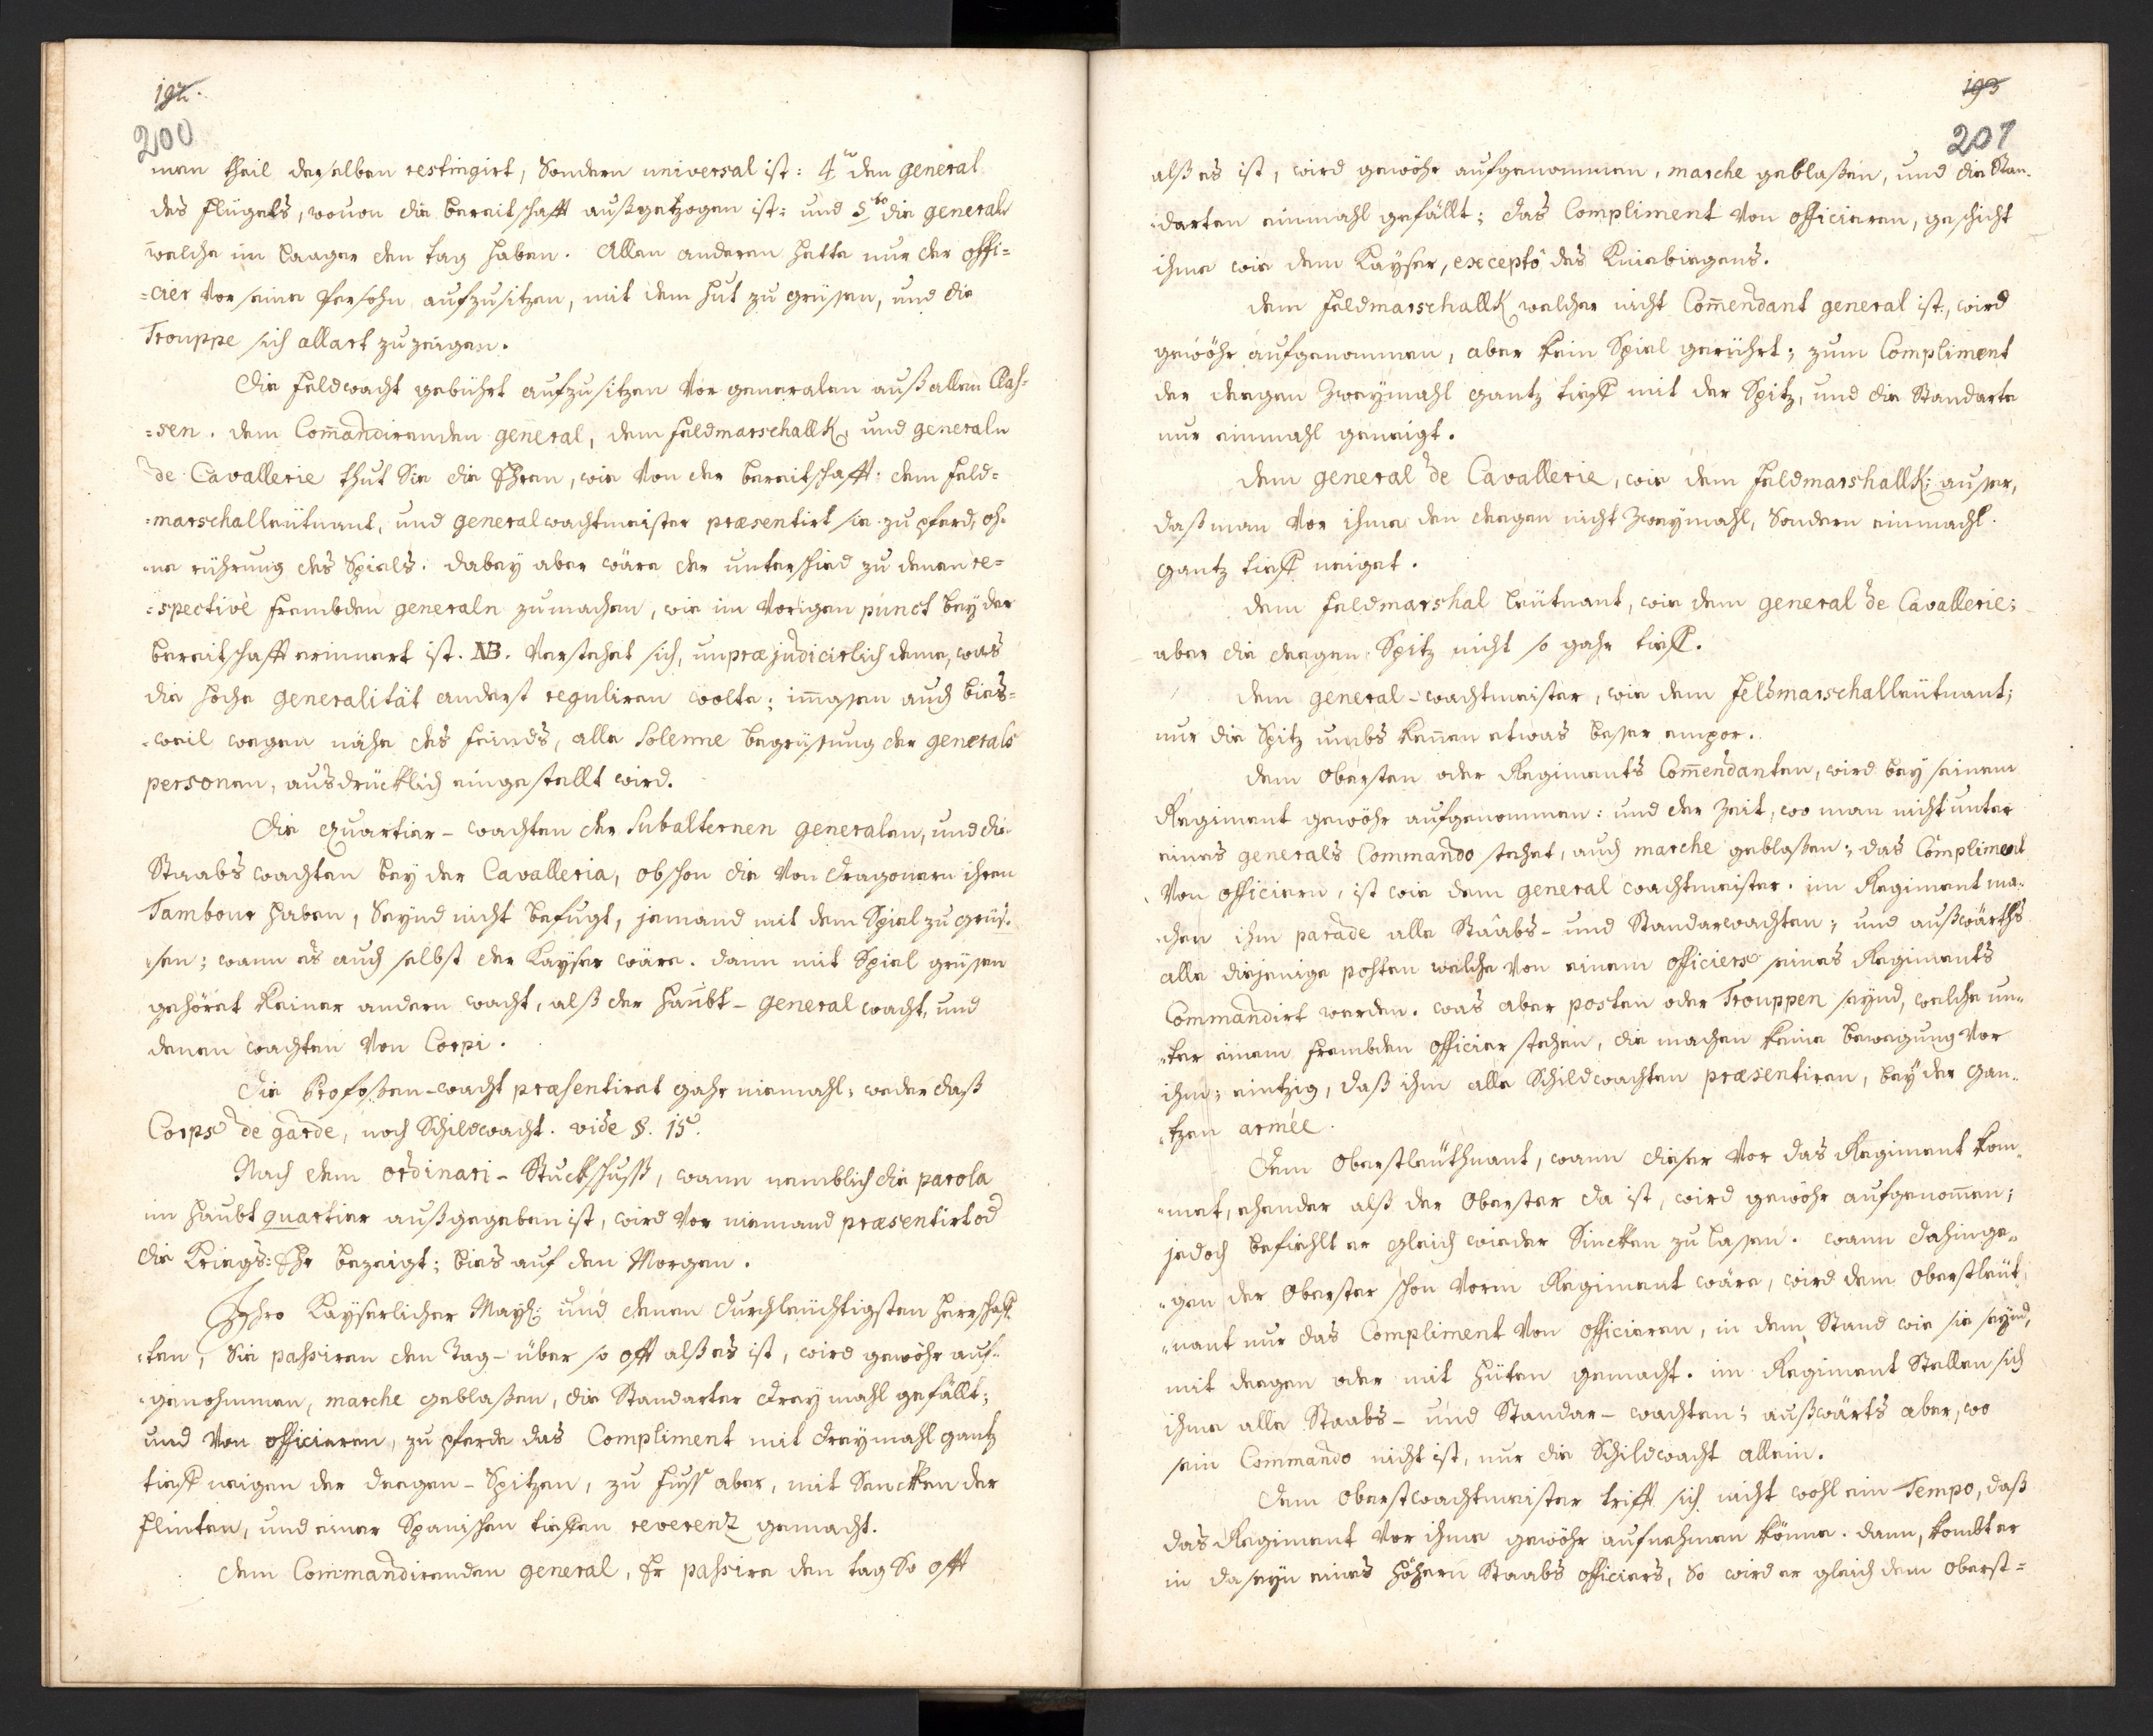 192.
200
men theil derselben restingirt, Sondern universal ist: 4to den General
des flügels, wovon die bereitschafft außgezogen ist: und 5to die generals
welche im Laager den tag haben. Allen anderen hette nur der offi=
=cier vor seine Persohn aufzusitzen, mit dem hut zu grüsen, und die
Trouppe sich allart zu zeigen.
Die feldwacht gebührt aufzusitzen vor generalen auß allen Clas=
=sen. dem Com̄andirenden general, dem feldmarschallk, und generaln
de Cavallerie thut Sie die Ehren, wie von der bereitschafft: dem feld=
=marschalleütnant, und generalwachtmeister præsentirt sie zu pferd, oh=
=ne rührung des Spiels. dabey aber wäre der unterschied zu denen re=
=spective frembden generaln zumachen, wie im vorigen punct bey der
bereitschafft erinnert ist. NB. verstehet sich, unpræjudicirlich deme, was
die hoche Generalität anderst reguliren wolte; im̄assen auch bies=
=weil wegen nähe des feinds, alle Solenne begrüsung der generals
personen, ausdrücklich eingestellt wird.
Die Quartier-wachten der Subalternen generalen, und die
Staabs wachten bey der Cavalleria, obschon die von dragonern ihren
Tambour haben, Seynd nicht befugt, jemand mit dem Spiel zu grüs=
=sen; wann es auch selbst der Kayser wäre. dann mit Spiel grüsen
gehöret keiner andern wacht, alß der haubt-general wacht, und
denen wachten von Corpi.
Die Profoßen-wacht præsentiret gahr niemahl; weder daß
Corps de garde, noch Schildwacht. vide §. 15.
Nach dem ordinari-Stuckschuß, wann nemblich die parola
im haubt quartier außgegeben ist, wird vor niemand præsentirt od
die Kriegs: Ehr bezeigt; bies auf den Morgen.
Ihro Kayserlicher Mayt: und denen durchleüchtigsten herrschaff=
=ten, Sie passiren den Tag-über so offt alß es ist, wird gewöhr auf=
=genohmmen, marche geblaßen, die Standarter dreymahl gefällt;
und von officieren, zu pferde das Compliment mit dreymahl gantz
tieff neigen der deegen-Spitzen, zu fuß aber, mit Sencken der
flinten, und einer Spanischen tieffen reverenz gemacht.
dem Commandirenden general, Er passire den tag So offt
193
201
alß es ist, wird gewöhr aufgenommen, marche geblaßen, und die Stan=
=darten einmahl gefällt; das Compliment von officieren, geschicht
ihme wie dem Kayser, excepto des Kniebiegens.
dem feldmarschallk welcher nicht Com̄endant general ist, wird
gewöhr aufgenommen, aber kein Spiel gerührt; zum Compliment
der deegen zweymahl gantz tieff mit der Spitz, und die Standarte
nur einmahl geneigt.
dem general de Cavallerie, wie dem feldmarshallk; ausser,
daß man vor ihme den deegen nicht zweymahl, Sondern einmahl
gantz tieff neiget.
dem feldmarshal leütnant, wie dem general de Cavallerie;
aber die deegen Spitz nicht so gahr tieff.
dem general-wachtmeister, wie dem feldmarschalleütnant;
nur die Spitz umbs kennen etwas besser empor.
dem Obersten oder Regiments Com̄endanten, wird bey seinem
Regiment gewöhr aufgenommen: und der Zeit, wo man nicht unter
eines generals Commando stehet, auch marche geblaßen; das Compliment
von officieren, ist wie dem general wachtmeister. im Regiment ma=
=chen ihm parade alle Staabs- und Standarwachten; und außwärths
alle diejenige posten welche von einem officiers seines Regiments
Commandirt werden. was aber posten oder Trouppen seynd, welche un=
=ter einem frembden officier stehen, die machen keine bewegung vor
ihm; eintzig, daß ihm alle Schildwachten præsentiren, bey der gan=
=tzen armée.
Dem Oberstleüthnant, wann dieser vor das Regiment kom=
=met, ehender alß der Oberster da ist, wird gewöhr aufgenom̄en;
jedoch befiehlt er gleich wieder Sincken zu lassen. wann dahinge=
=gen der Oberster schon vorm Regiment wäre, wird dem Oberstleüt=
=nant nur das Compliment von officieren, in dem Stand wie sie seynd,
mit deegen oder mit hüten gemacht. im Regiment Stellen sich
ihme alle Staabs- und Standar-wachten; außwärts aber, wo
sein Commando nicht ist, nur die Schildwacht allein.
Dem Oberstwachtmeister trifft sich nicht wohl ein Tempo, daß
das Regiment vor ihme gewöhr aufnehmen könne. dann, kombt er
in daseyn eines höhern Staabs officiers, So wird er gleich dem Oberst=